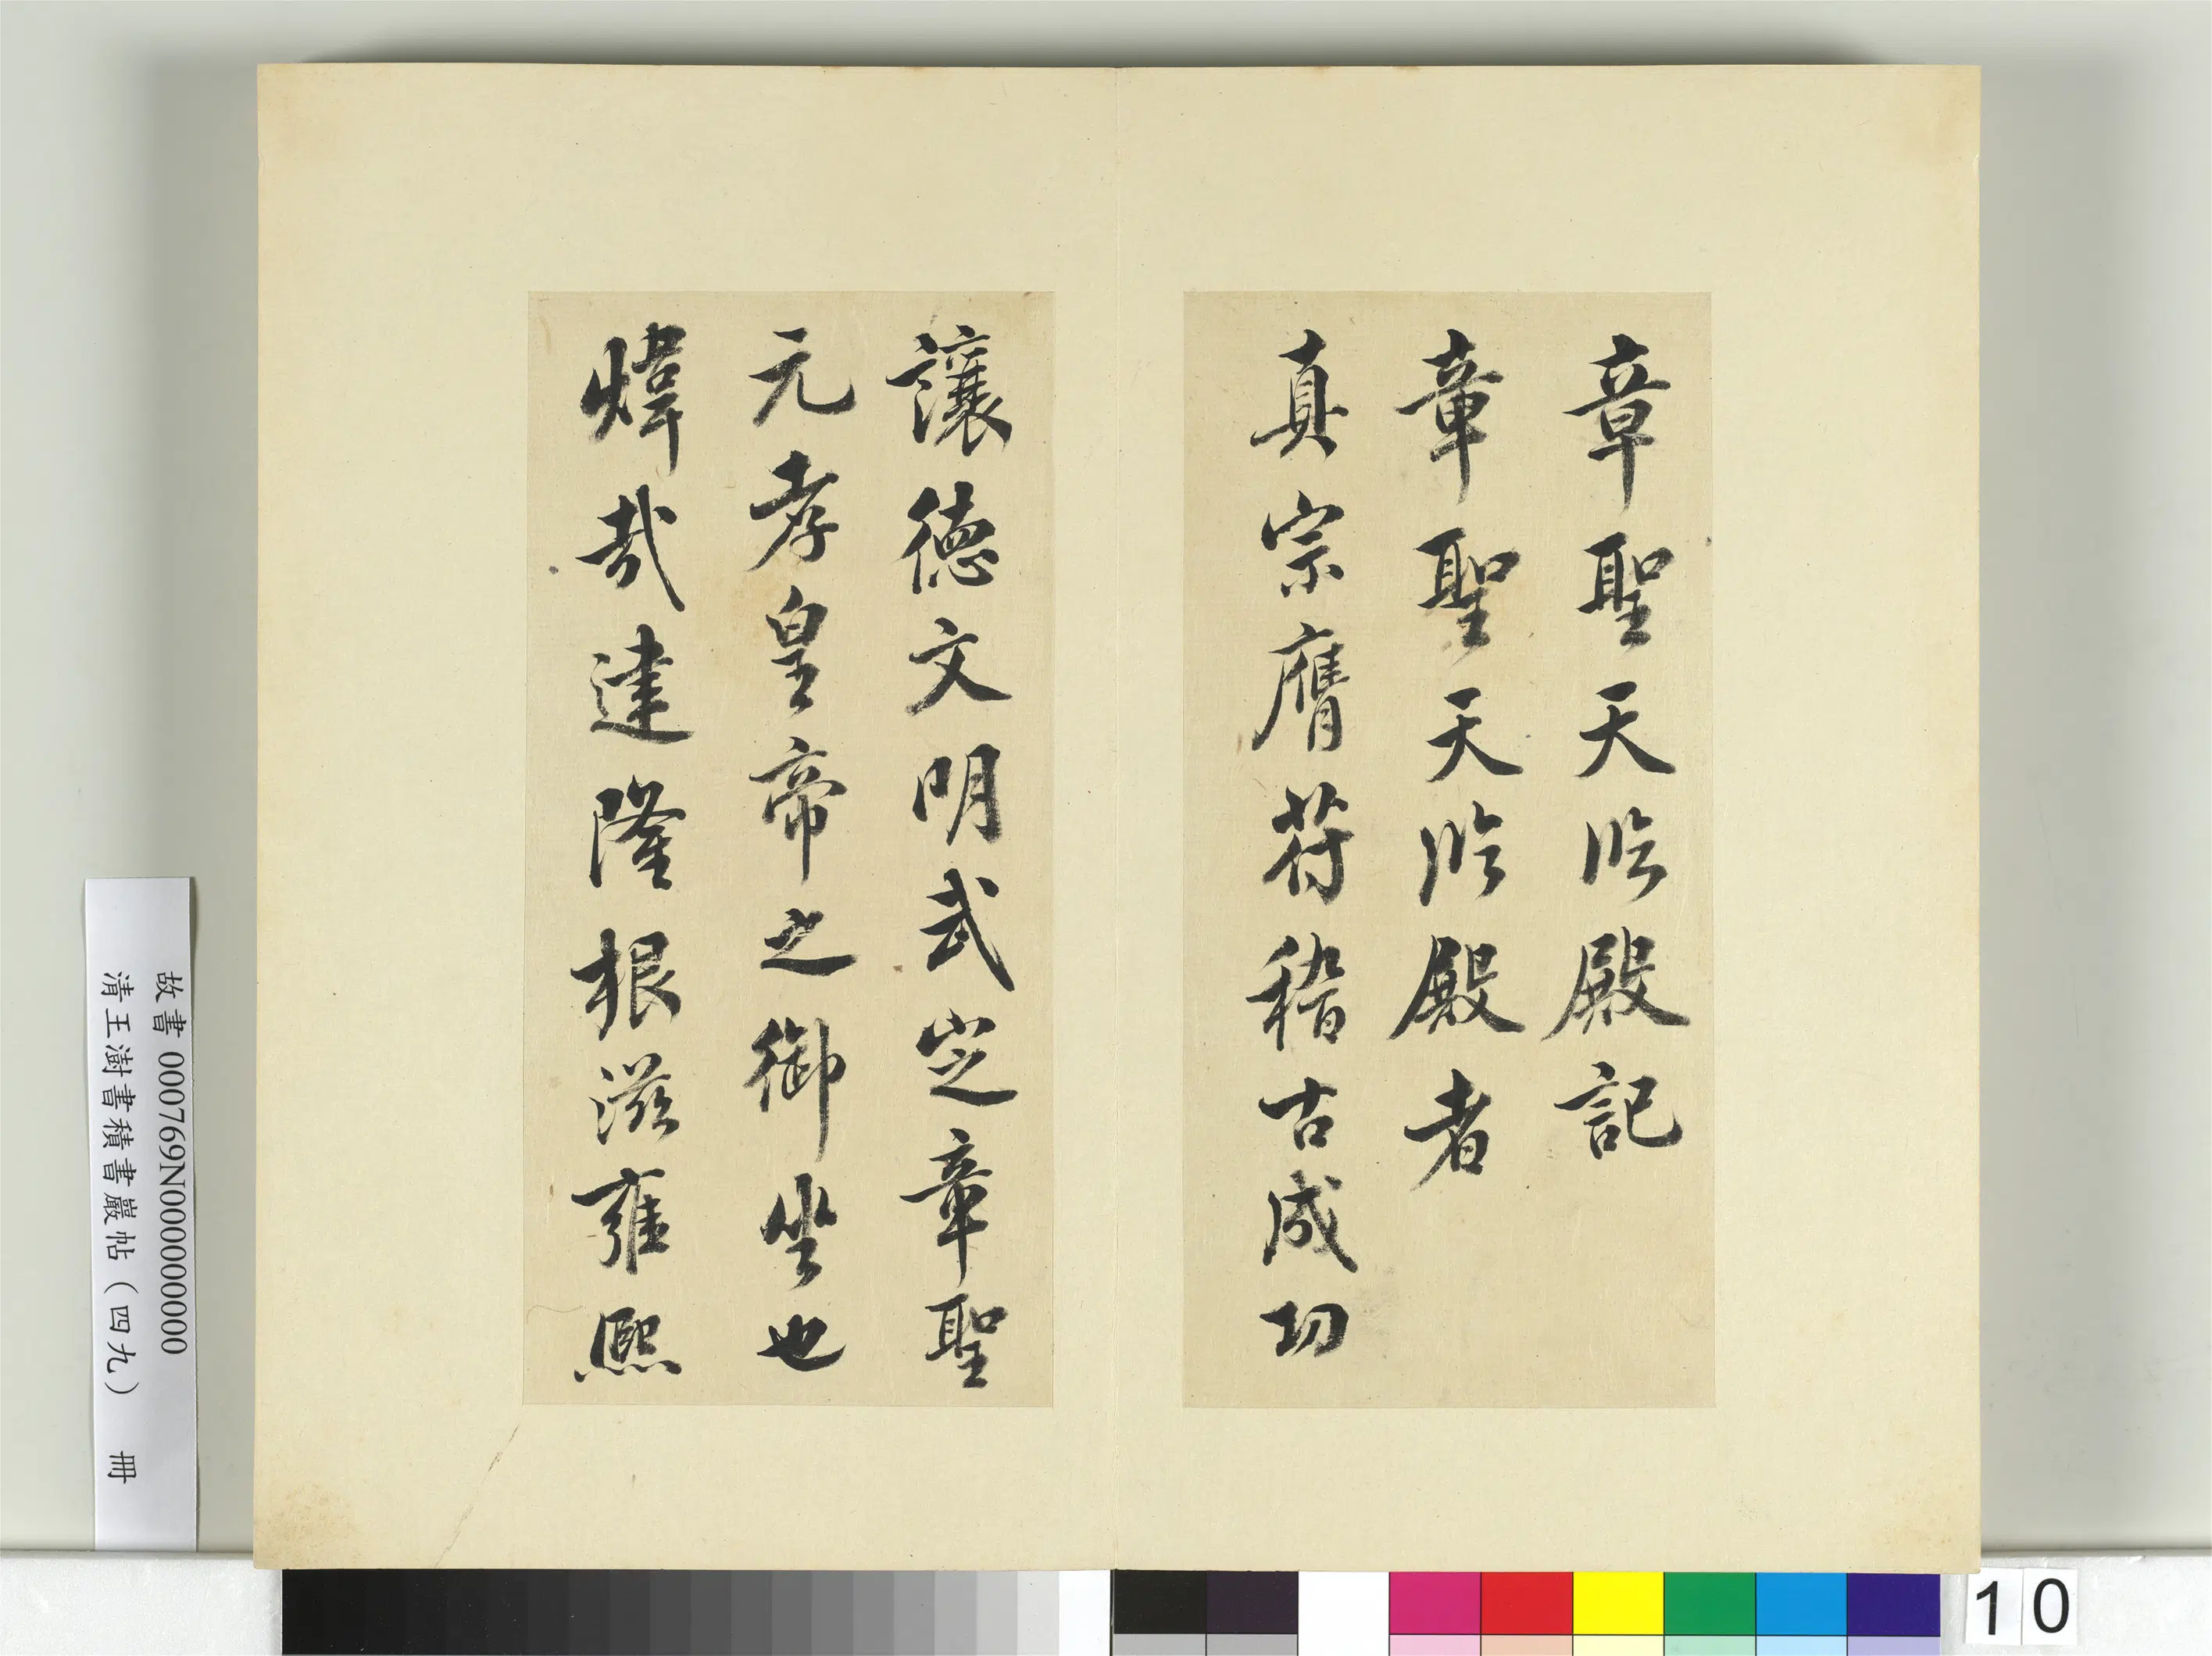 章聖天臨殿記
章聖天臨殿者
真宗膺符稽古成功
讓德文明武定章聖
元孝皇帝之御坐也
煒哉建隆根滋雍熙
故書 000769N000000000
清王澍書積書巖帖(四九) 冊
10